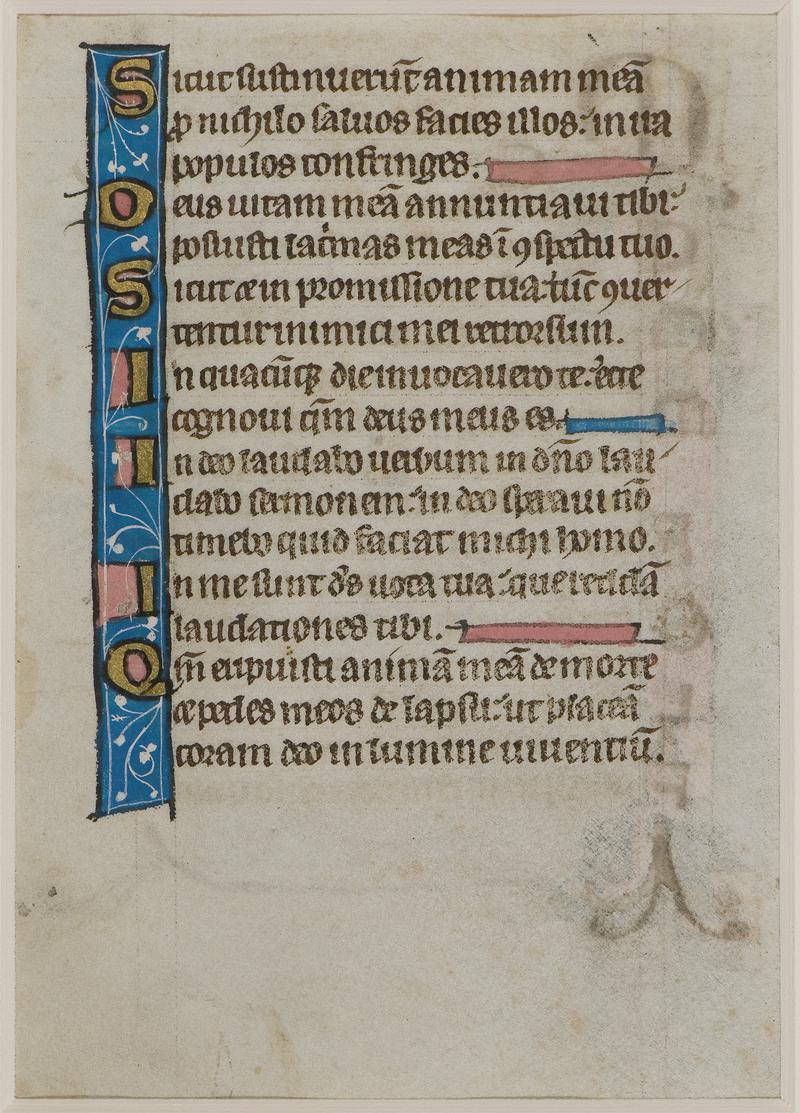 Sicut sustinuerūt animam meā
ꝓ nichilo saluos facies illos: in ira
populos confringes.
Deus uitam meā annuntiaui tibi:
posuisti lac̄mas meas ī ꝯspectu tuo.
Sicut ⁊ in promissione tua: tūc ꝯuer
tentur inimici mei retrorsum.
In quacūqꝫ die inuocauero te: ecce
cognoui qm̄ deus meus es.
In deo laudabo uerbum in dn̄o lau
dabo sermonem: in deo speraui nō
timebo quid faciat michi homo.
In me sunt ds̄ uota tua: que reddā
laudationes tibi.
Qm̄ eripuisti animā meā de morte
⁊ pedes meos de lapsu: ut placeā
coram deo in lumine uiuentiū.